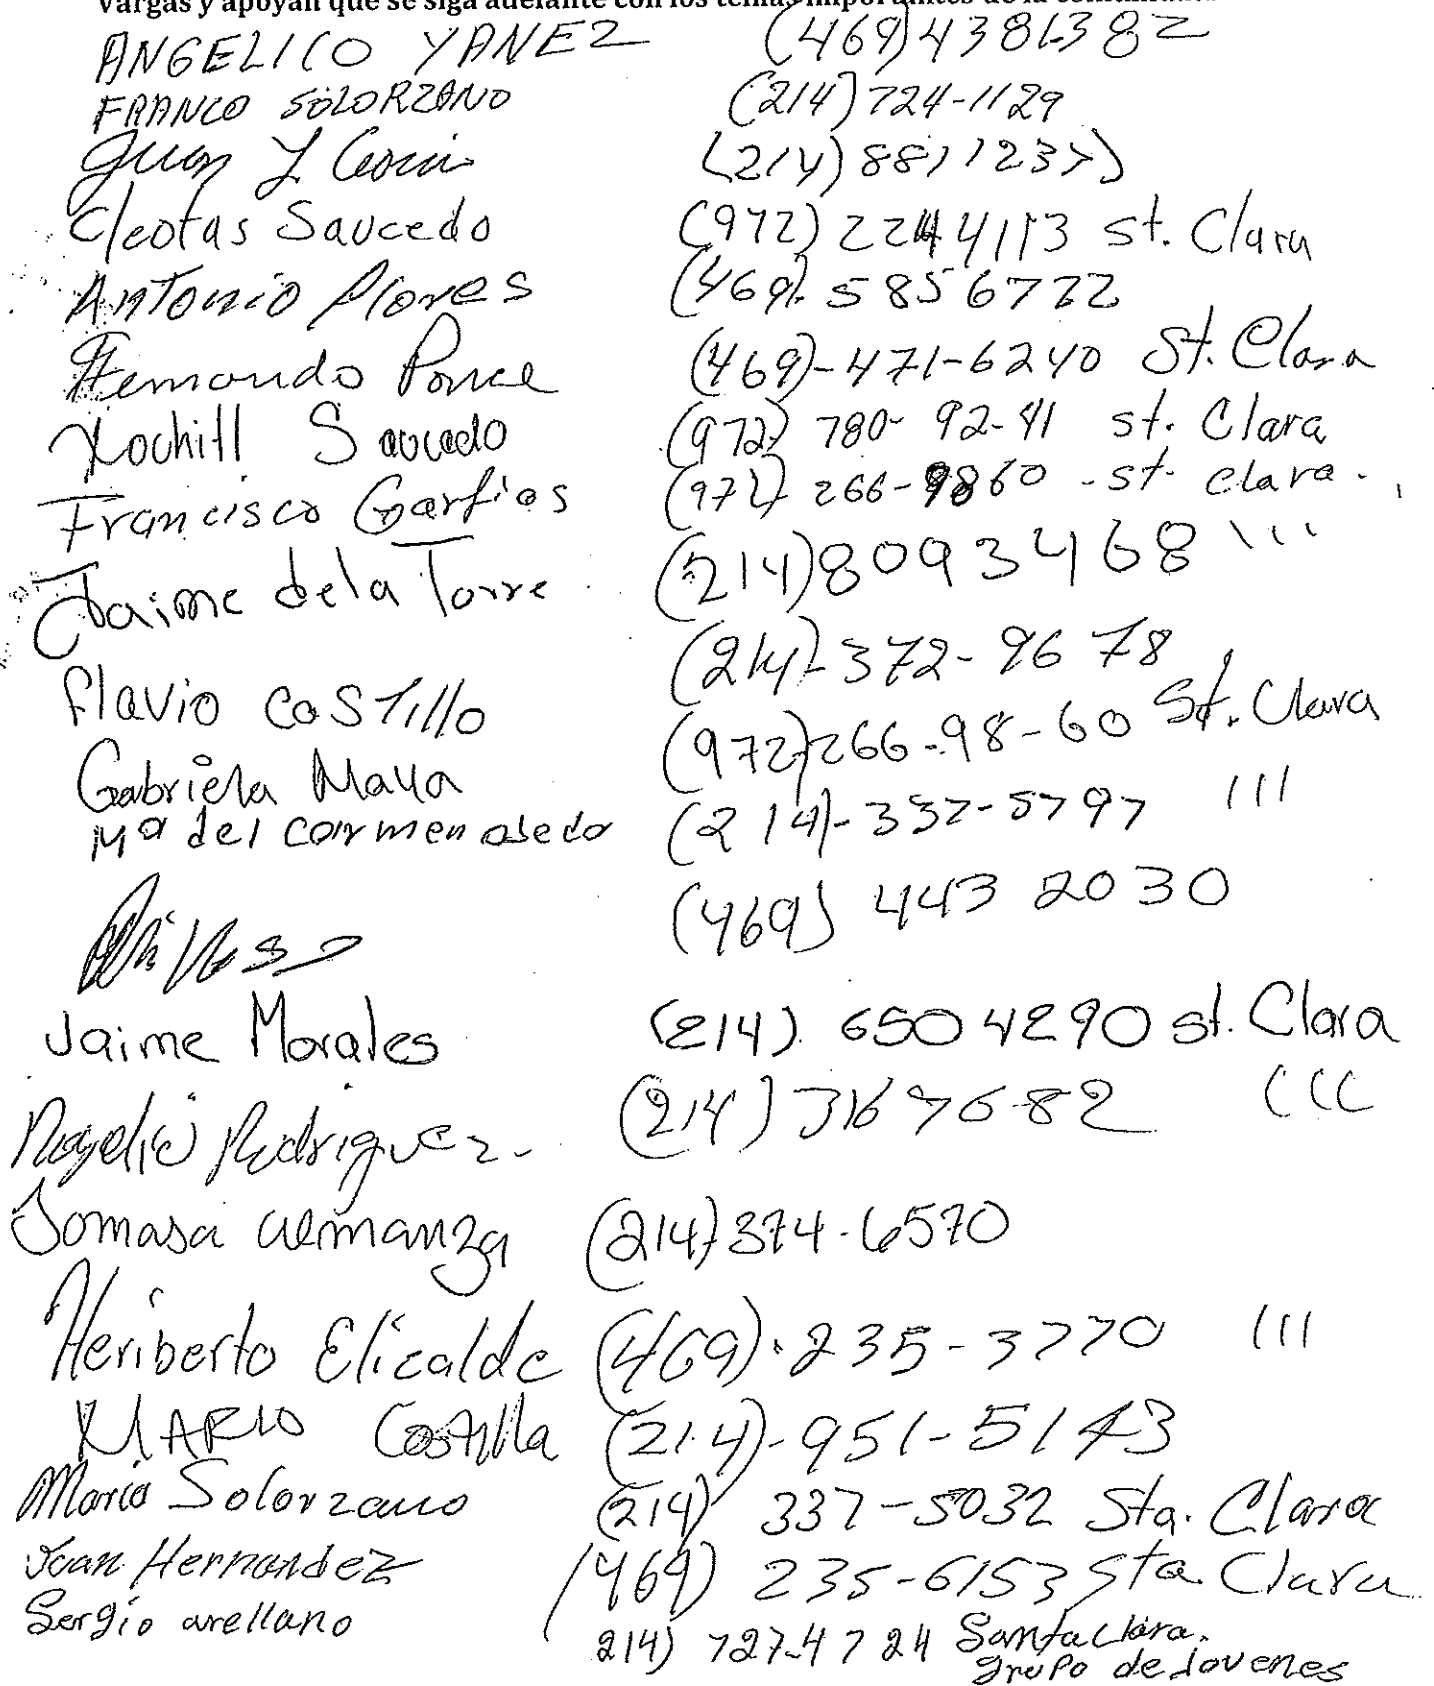 Vargas y apoyan que se siga adelante con los temas importantes de la comunidad
ANGELICO YANEZ (469) 438 1382
FRANCO SOLORZANO (214) 724-1129
Juan Y (214) 881 1237)
Cleofas Saucedo (972) 224 4113 st. Clara
Antonio Flores (469). 585 6722
Hernando Ponce (469)-471-6240 St. Clara
Xochitl Saucedo (972) 780- 92-41 st. Clara
Francisco Garfias (972) 266-9860 - st. clara.
Jaime dela Torre (214) 809 3468 \ \ \
Flavio CaSTillo (214)-372-96 78
Gabriela Maya (972) 266-98-60 St. Clara
Mª del carmen (214)-337-5797 111
(469) 443 2030
Jaime Morales (214). 650 4290 st. Clara
Rogelio Rodriguez- (214) 316 7682 (((
Tomasa almanza (214) 374-6570
Heriberto Elicalde (469)-235-3770 111
MARIO Costilla (214)-951-5143
Maria Solorzano (214) 337-5032 Sta. Clara
Juan Hernandez (469) 235-6153 Sta Clara
Sergio arellano 214) 727-4724 Santa Clara.
grupo de jovenes